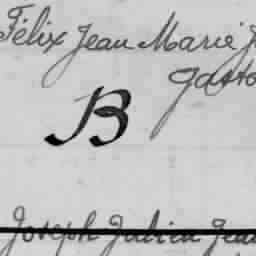 Félix Jean Marie
Gasto
B
Joseph Julien Jean